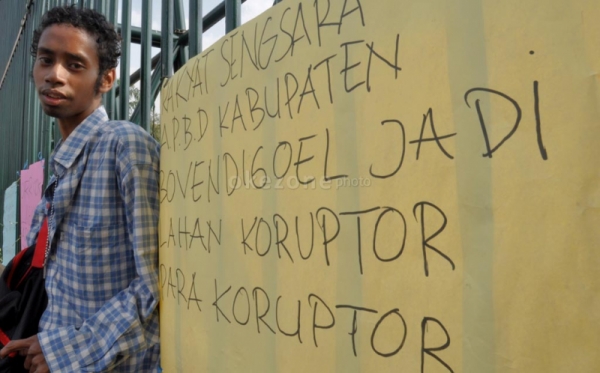 RAKYAT SENGSARA
A.P.B.D KABUPATEN
BOVENDIGOEL JADI
LAHAN KORUPTOR
PARA KORUPTOR
okezone photo